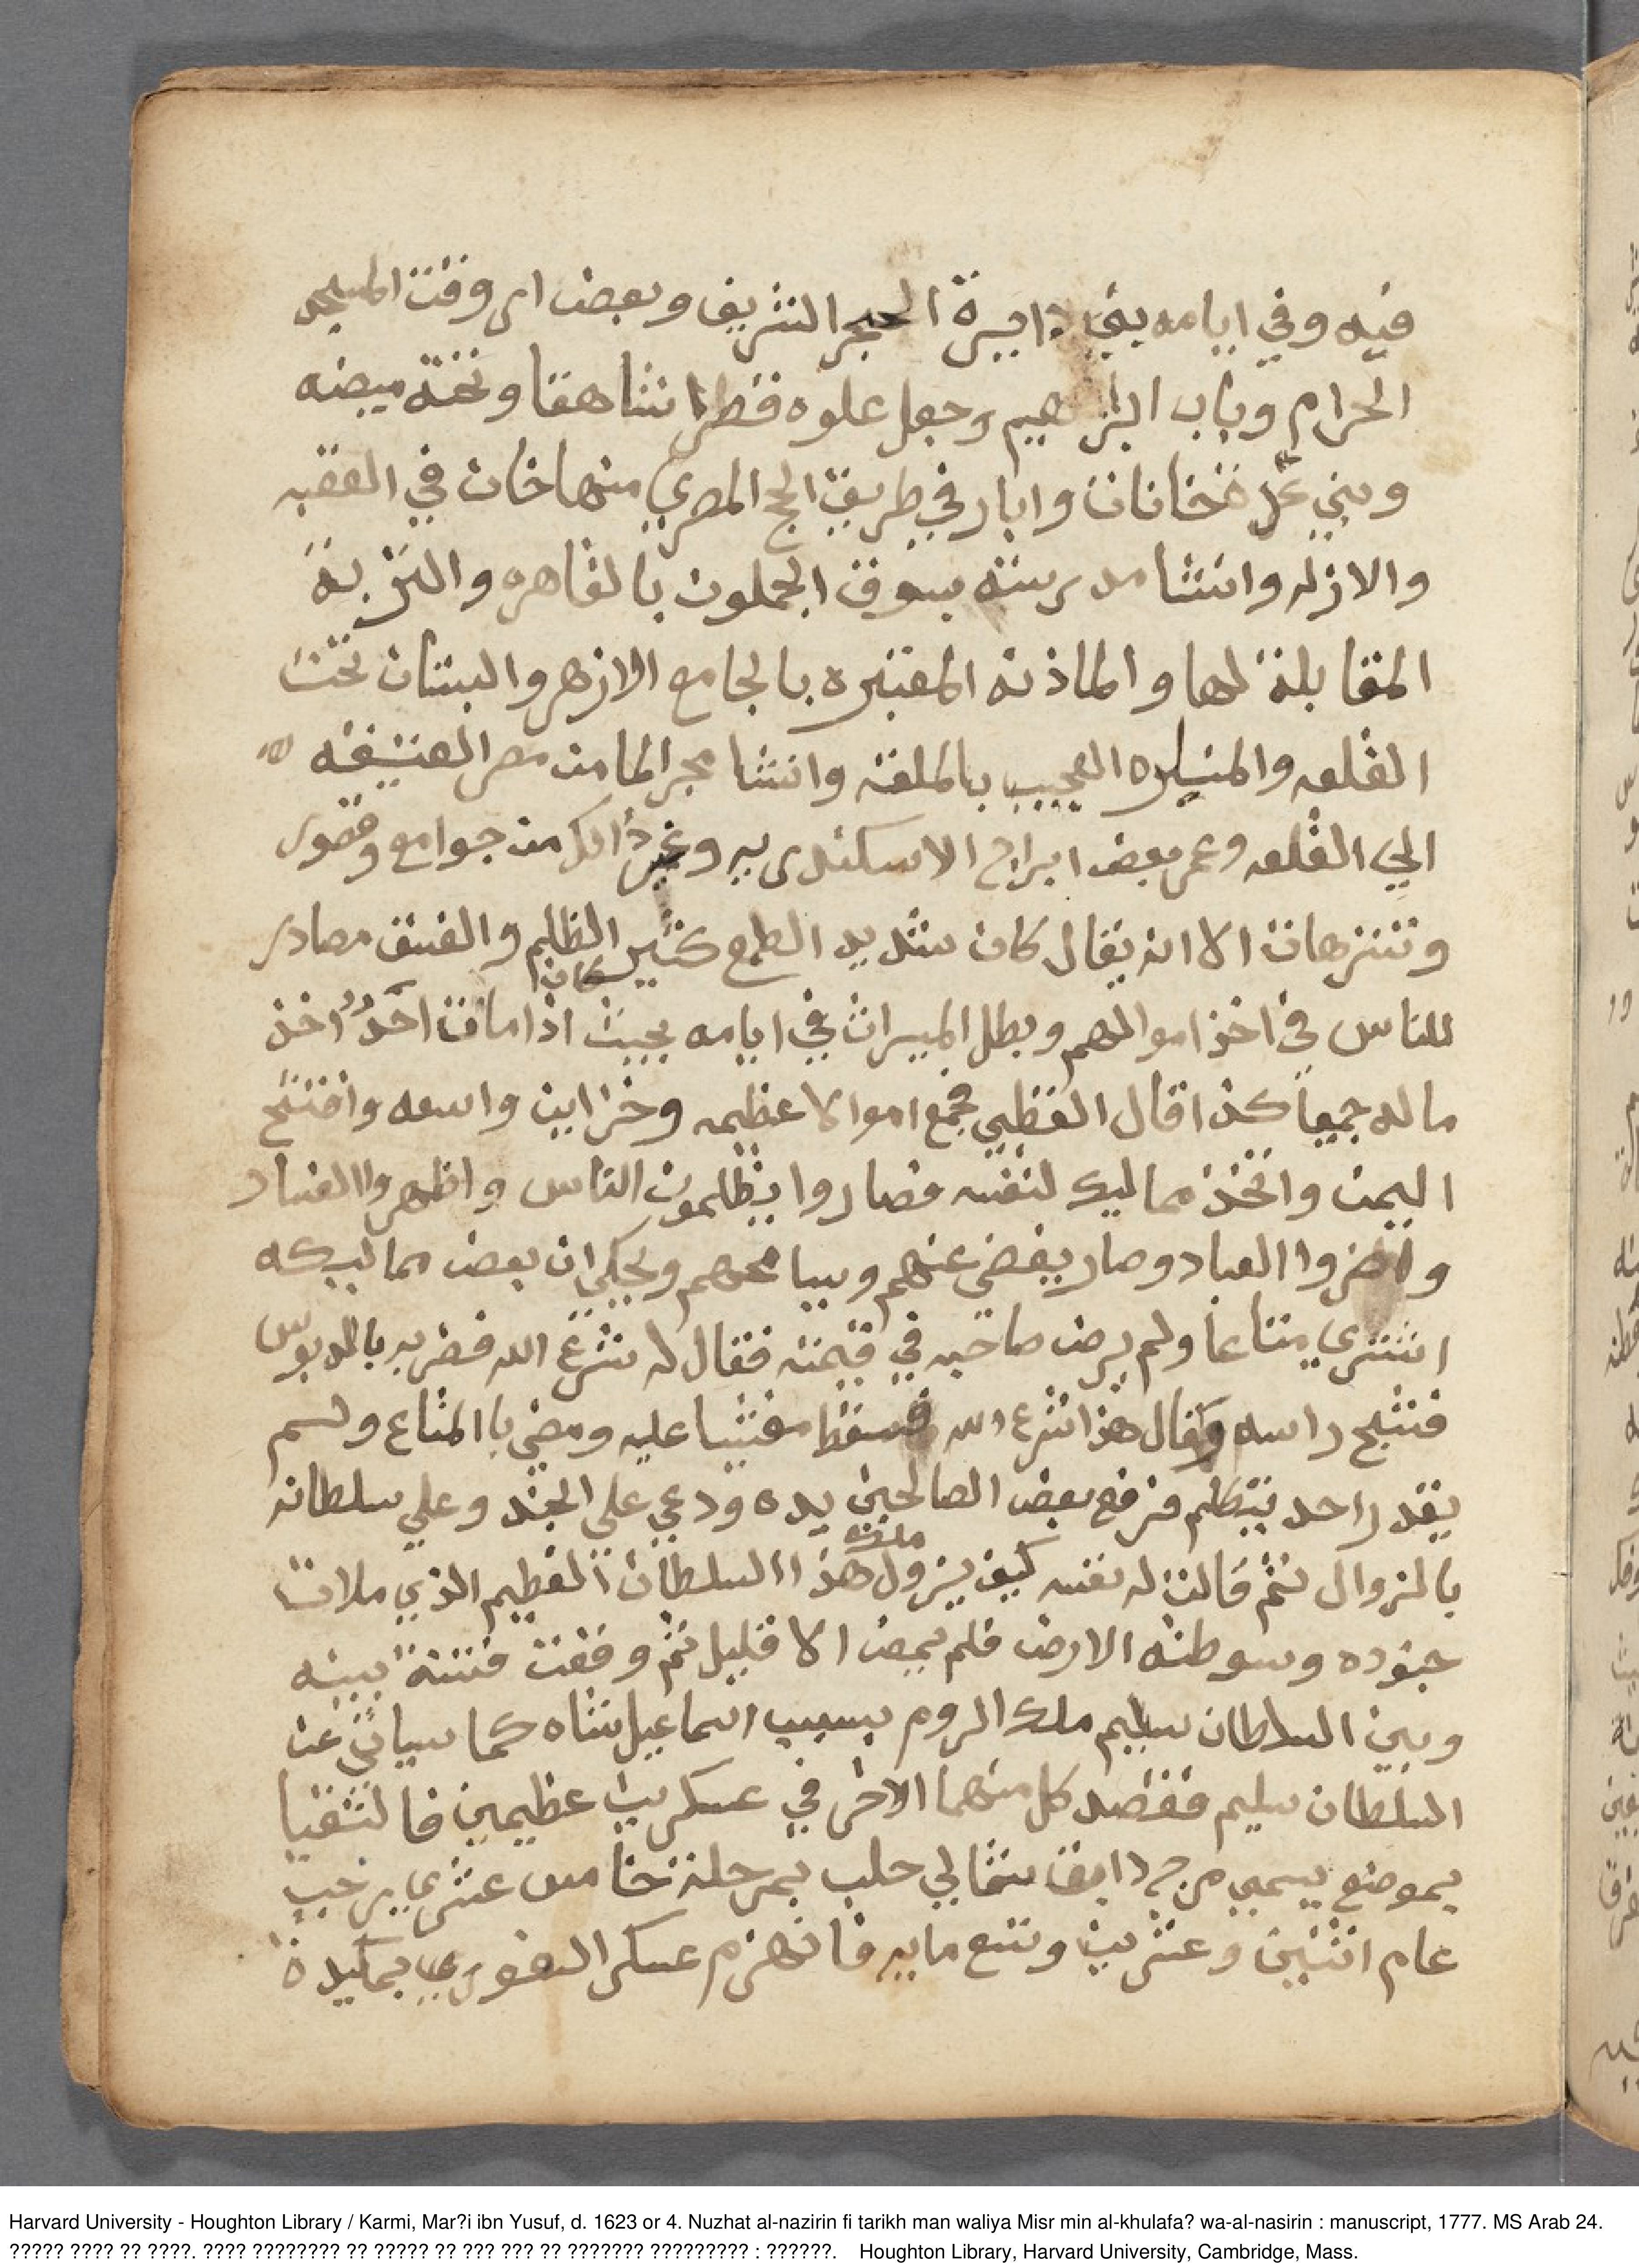 فيه وفي ايامه بني دايرة الحجر الشريف وبعض اروقت المسجد
الحرام وباب ابراهيم وجعل علوه قصرا شاهقا وتحته ميضه
وبني عدة خانات وابار في طريق الحج المصري منها خان في العقبه
والازلم وانشا مدرسته بسوق الجملون بالقاهره والتربة
المقابلة لها والماذنه المعتبره بالجامع الازهر والبستان تحت
القلعه والمنياره العجيب بالملقه وانشا مجر الما من مصر العتيقه
الي القلعه وعمر بعض ابراج الاسكندريه وغير ذالك من جوامع وقصور
وتنزهات الا انه يقال كان شديد الطمع كثير الظلم والفسق مصادر
للناس في اخذ اموالهم وبطل الميراث في ايامه بحيث كان اذا مات احد اخذ
ماله جميعا كذا قال القطبي فجمع اموالا عظيمه وخزاين واسعه وافتتح
اليمن واتخذ مماليك لنفسه فصاروا يظلمون الناس واظهروا الفساد
واضروا العباد وصار يغضي عنهم ويسامحهم ويحكي ان بعض مماليكه
اشتري متاعا ولم يرض صاحبه في قيمته فقال له شرع الله فضربه بالدبوس
فشج راسه وقال هذا شرع الله فسقط مغشيا عليه ومضي باالمتاع ولم
يقدر احد يتظلم فرفع بعض الصالحين يده ودعي علي الجند وعلي سلطانه
بالزوال ثم قالت له نفسه كيف يزول ملك هذا السلطان العظيم الذي ملات
جنوده وسوطته الارض فلم يمض الا قليل ثم وقعت فتنة بينه
وبين السلطان سليم ملك الروم بسبب اسماعيل شاه كما سياتي عن
السلطان سليم فقصد كل منهما الاخر في عسكرين عظيمين فالتقيا
بموضع يسمي مرج دابق شمالي حلب بمرحلة خامس عشري رجب
عام اثنين وعشرين وتسع مايه فانهزم عسكر الغوري بمكيدة
Harvard University - Houghton Library / Karmi, Mar?i ibn Yusuf, d. 1623 or 4. Nuzhat al-nazirin fi tarikh man waliya Misr min al-khulafa? wa-al-nasirin : manuscript, 1777. MS Arab 24.
????? ???? ?? ????. ???? ???????? ?? ????? ?? ??? ??? ?? ??????? ????????? : ??????. Houghton Library, Harvard University, Cambridge, Mass.